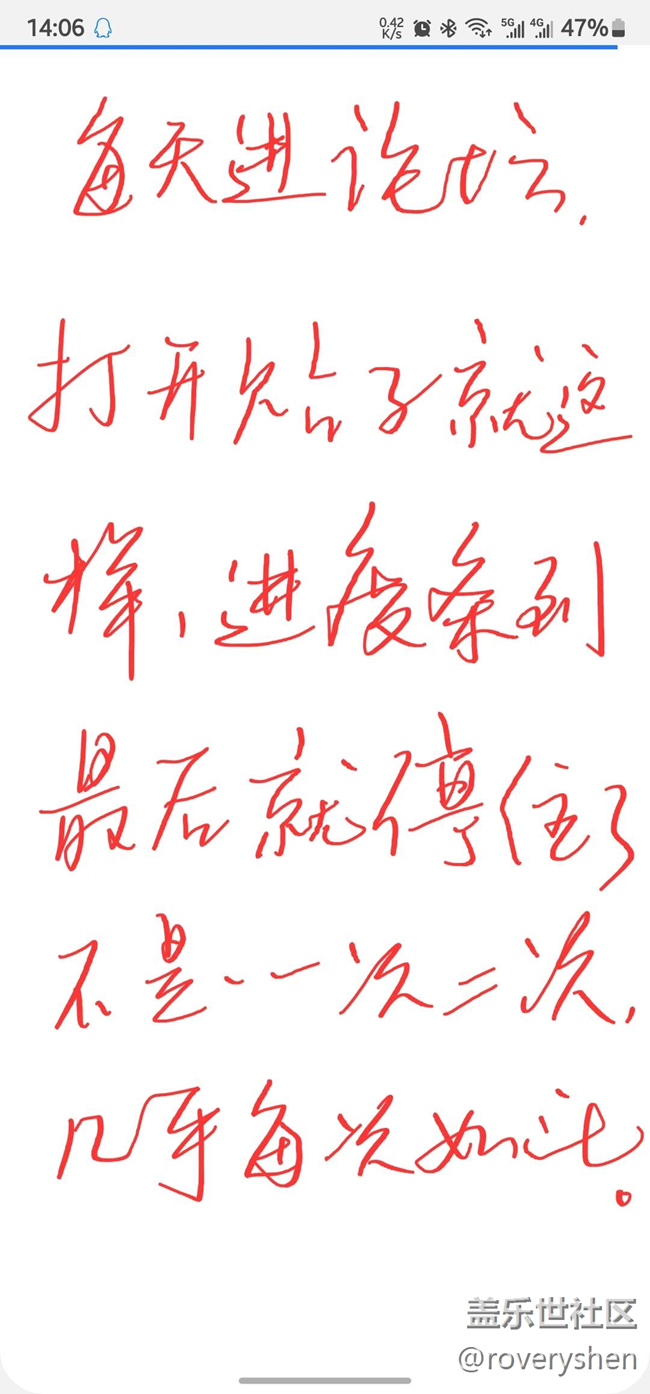 14:06 0.42 K/s 5G 4G 47%
每天进论坛.
打开贴子就这
样,进度条到
最后就停住了
不是一次二次,
几乎每次如此。
盖乐世社区
@roveryshen